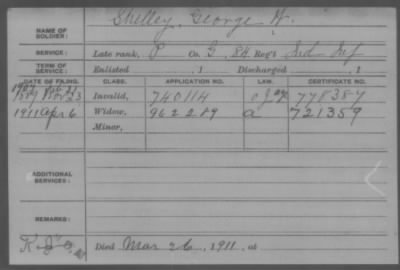 NAME OF SOLDIER: Shelley, George W.
SERVICE: Late rank, P Co. G, 84 Reg't Ind Inf
TERM OF SERVICE: Enlisted , 1 Discharged , 1
DATE OF FILING. CLASS. APPLICATION NO. LAW. CERTIFICATE NO.
Invalid, 740114 778387
1911 Apr 6 Widow, 962289 a 721359
Minor,
ADDITIONAL SERVICES:
REMARKS:
Died Mar 26, 1911, at